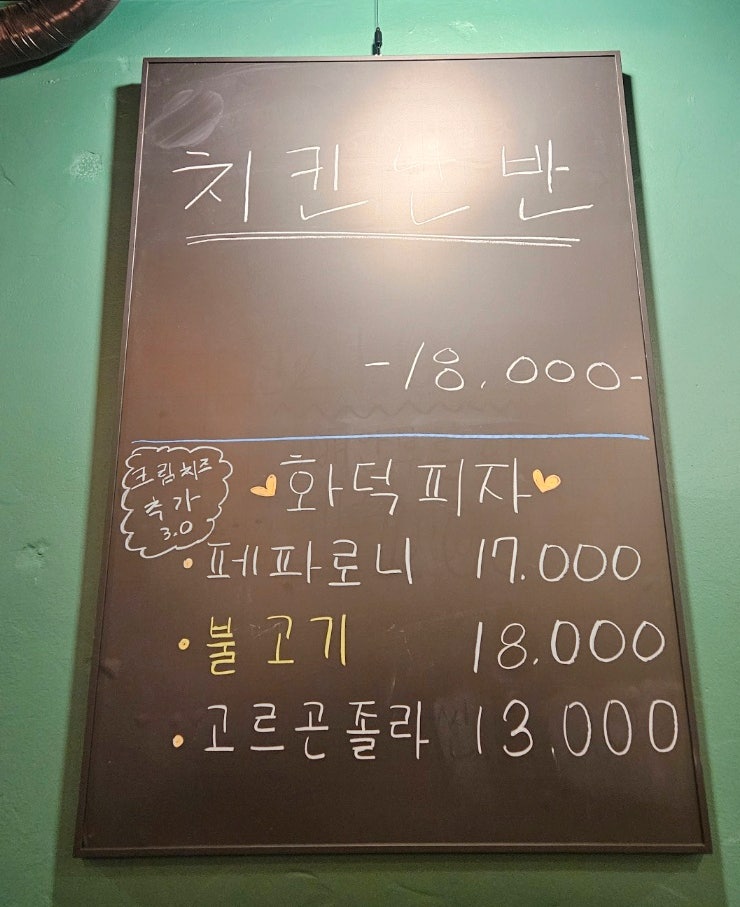 치킨난반
-18.000-
크림치즈
추가
3.0
화덕피자
· 페파로니 17.000
· 불고기 18.000
· 고르곤졸라 13.000